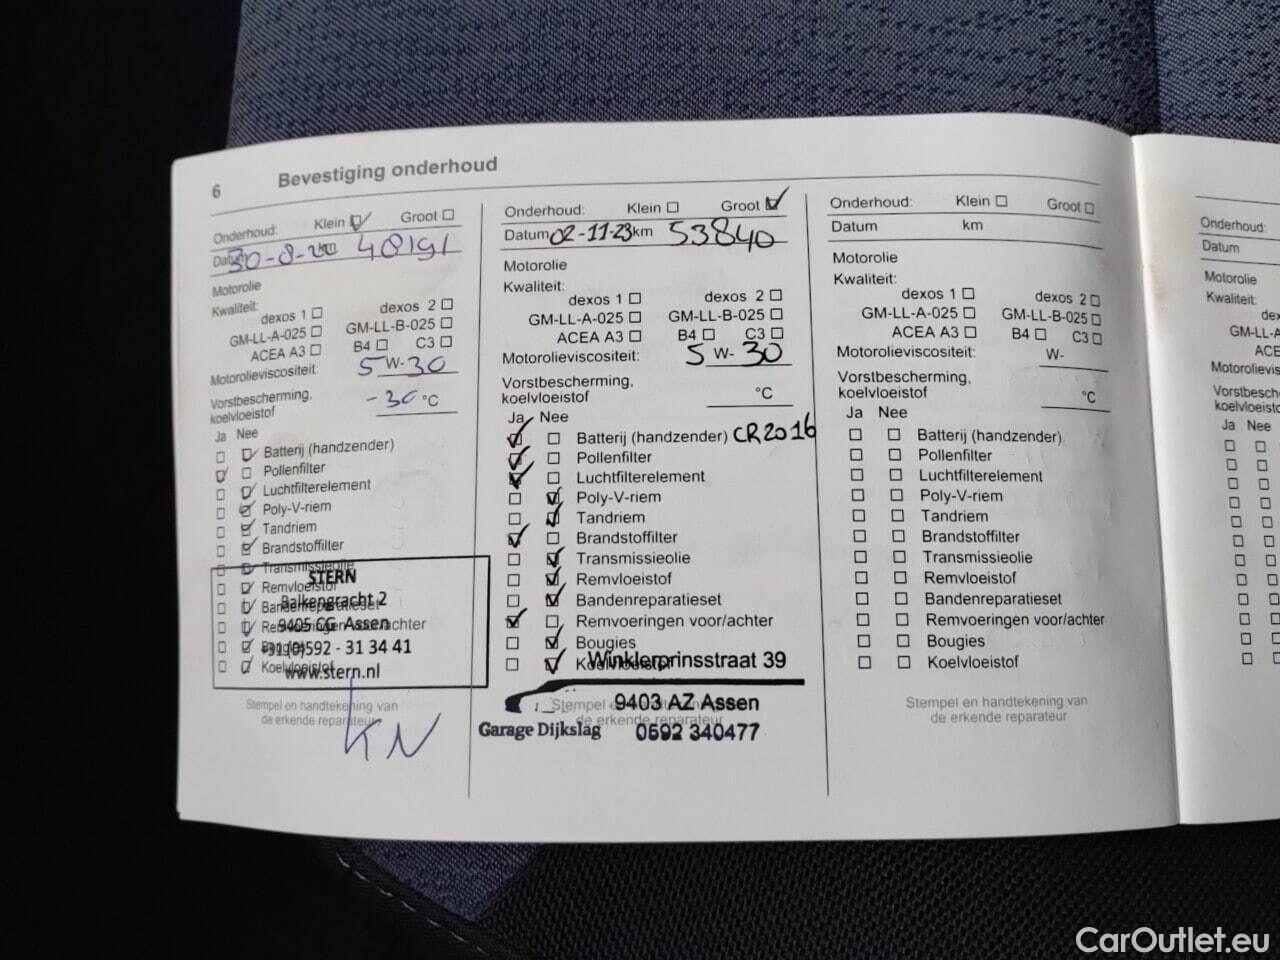 6 Bevestiging onderhoud
Onderhoud: Klein Groot
Datum 30-8- km 48191
Motorolie
Kwaliteit:
dexos 1 dexos 2
GM-LL-A-025 GM-LL-B-025
ACEA A3 B4 C3
Motorolieviscositeit: 5 W- 30
Vorstbescherming,
koelvloeistof -30 °C
Ja Nee
Batterij (handzender)
Pollenfilter
Luchtfilterelement
Poly-V-riem
Tandriem
Brandstoffilter
Transmissieolie
Remvloeistof
Bandenreparatieset
Remvoeringen voor/achter
Bougies
Koelvloeistof
STERN
Balkengracht 2
9405 CG Assen
+31 (0)592 - 31 34 41
www.stern.nl
Stempel en handtekening van
de erkende reparateur
KN
Onderhoud: Klein Groot
Datum 02-11-23 km 53840
Motorolie
Kwaliteit:
dexos 1 dexos 2
GM-LL-A-025 GM-LL-B-025
ACEA A3 B4 C3
Motorolieviscositeit: 5 W- 30
Vorstbescherming,
koelvloeistof °C
Ja Nee
Batterij (handzender) CR2016
Pollenfilter
Luchtfilterelement
Poly-V-riem
Tandriem
Brandstoffilter
Transmissieolie
Remvloeistof
Bandenreparatieset
Remvoeringen voor/achter
Bougies
Koelvloeistof
Winklerprinsstraat 39
9403 AZ Assen
Garage Dijkslag 0592 340477
Stempel en handtekening van
de erkende reparateur
Onderhoud: Klein Groot
Datum km
Motorolie
Kwaliteit:
dexos 1 dexos 2
GM-LL-A-025 GM-LL-B-025
ACEA A3 B4 C3
Motorolieviscositeit: W-
Vorstbescherming,
koelvloeistof °C
Ja Nee
Batterij (handzender)
Pollenfilter
Luchtfilterelement
Poly-V-riem
Tandriem
Brandstoffilter
Transmissieolie
Remvloeistof
Bandenreparatieset
Remvoeringen voor/achter
Bougies
Koelvloeistof
Stempel en handtekening van
de erkende reparateur
Onderhoud:
Datum
Motorolie
Kwaliteit:
dex
GM-LL-A
ACE
Motorolievis
Vorstbesc
koelvloeist
Ja Nee
CarOutlet.eu